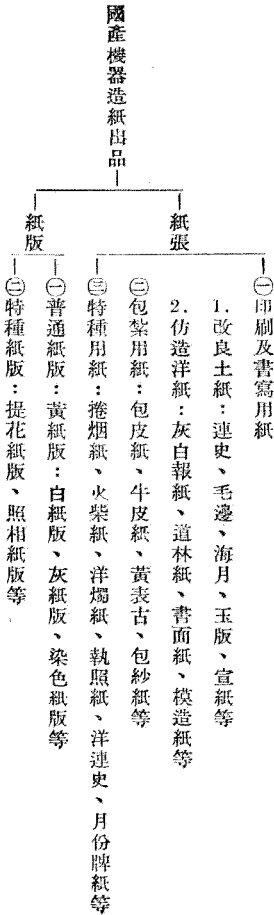 國產機器造紙出品
紙張
㊀印刷及書寫用紙
1.改良土紙：連史、毛邊、海月、玉版、宣紙等
2.仿造洋紙：灰白報紙、道林紙、書面紙、模造紙等
㊁包紮用紙：包皮紙、牛皮紙、黃表古、包紗紙等
㊂特種用紙：捲烟紙、火柴紙、洋燭紙、執照紙、洋連史、月份牌紙等
紙版
㊀普通紙版：黃紙版：白紙版、灰紙版、染色紙版等
㊁特種紙版：提花紙版、照相紙版等